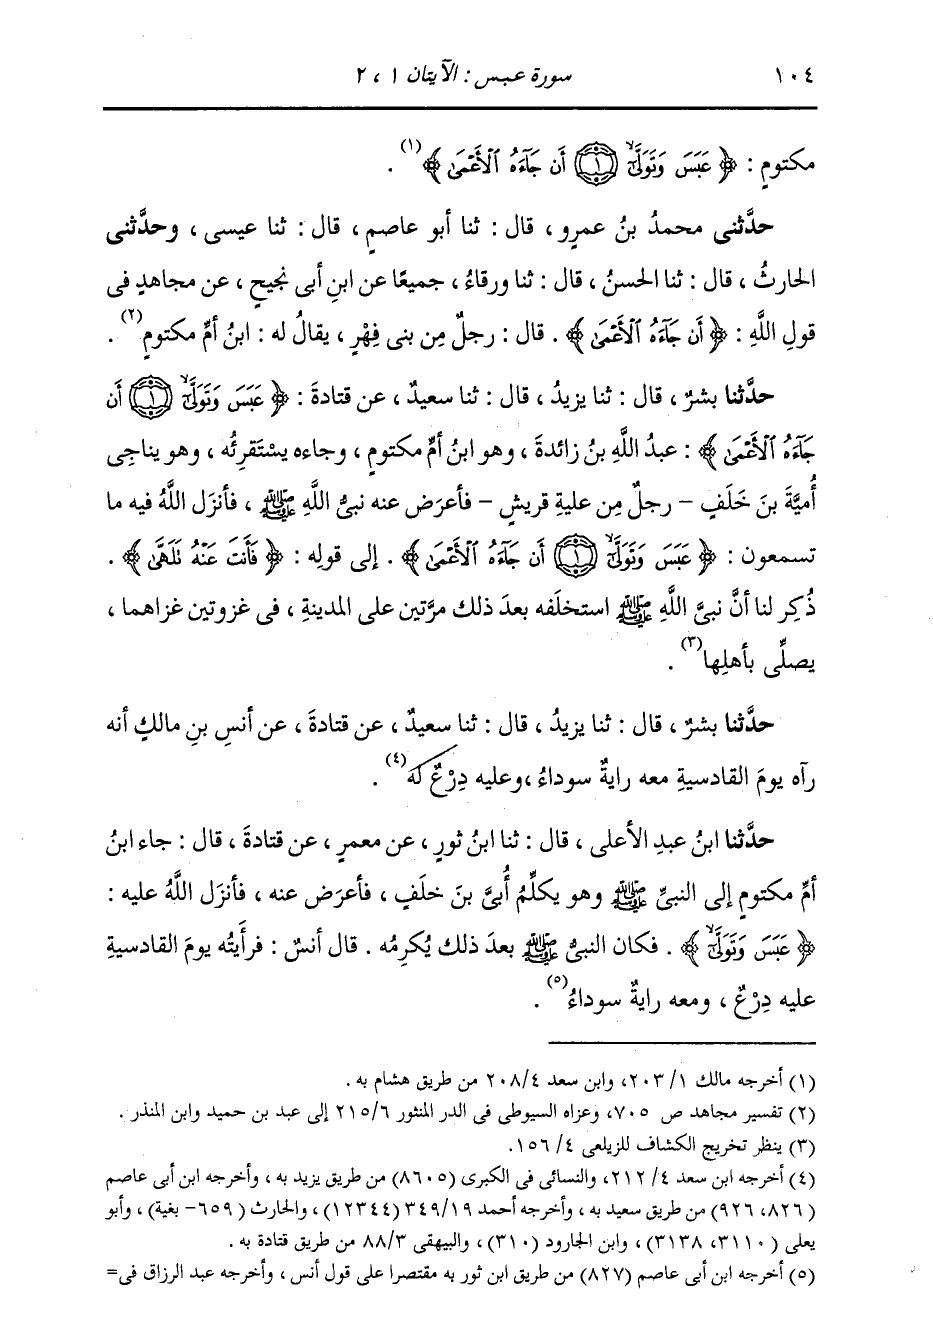 ١٠٤ سورة عبس : الآيتان ١ ، ٢
مكتومٍ : ﴿ عَبَسَ وَتَوَلَّىٰٓ ۝١ أَن جَآءَهُ ٱلۡأَعۡمَىٰ ﴾(١) .
حدَّثنى محمدُ بنُ عمرٍو ، قال : ثنا أبو عاصمٍ ، قال : ثنا عيسى ، وحدَّثنى
الحارثُ ، قال : ثنا الحسنُ ، قال : ثنا ورقاءُ ، جميعًا عن ابنِ أبى نجيحٍ ، عن مجاهدٍ فى
قولِ اللَّهِ : ﴿ أَن جَآءَهُ ٱلۡأَعۡمَىٰ ﴾ . قال : رجلٌ مِن بنى فِهْرٍ ، يقالُ له : ابنُ أمِّ مكتومٍ(٢) .
حدَّثنا بشرٌ ، قال : ثنا يزيدُ ، قال : ثنا سعيدٌ ، عن قتادةَ : ﴿ عَبَسَ وَتَوَلَّىٰٓ ۝١ أَن
جَآءَهُ ٱلۡأَعۡمَىٰ ﴾ : عبدُ اللَّهِ بنُ زائدةَ ، وهو ابنُ أمِّ مكتومٍ ، وجاءه يستَقرِئُه ، وهو يناجِى
أُميَّةَ بنَ خَلَفٍ - رجلٌ مِن عليةِ قريشٍ - فأعرَض عنه نبىُّ اللَّهِ ﷺ ، فأنزَل اللَّهُ فيه ما
تسمعون : ﴿ عَبَسَ وَتَوَلَّىٰٓ ۝١ أَن جَآءَهُ ٱلۡأَعۡمَىٰ ﴾ . إلى قولِه : ﴿ فَأَنتَ عَنۡهُ تَلَهَّىٰ ﴾ .
ذُكِر لنا أنَّ نبىَّ اللَّهِ ﷺ استخلَفه بعدَ ذلك مرَّتين على المدينةِ ، فى غزوتين غزاهما ،
يصلِّى بأهلِها(٣) .
حدَّثنا بشرٌ ، قال : ثنا يزيدُ ، قال : ثنا سعيدٌ ، عن قتادةَ ، عن أنسِ بنِ مالكٍ أنه
رآه يومَ القادسيةِ معه رايةٌ سوداءُ ، وعليه دِرْعٌ له(٤) .
حدَّثنا ابنُ عبدِ الأعلى ، قال : ثنا ابنُ ثورٍ ، عن معمرٍ ، عن قتادةَ ، قال : جاء ابنُ
أمِّ مكتومٍ إلى النبىِّ ﷺ وهو يكلِّمُ أُبىَّ بنَ خلفٍ ، فأعرَض عنه ، فأنزَل اللَّهُ عليه :
﴿ عَبَسَ وَتَوَلَّىٰٓ ﴾ . فكان النبىُّ ﷺ بعدَ ذلك يُكرِمُه . قال أنسٌ : فرأيتُه يومَ القادسيةِ
عليه دِرْعٌ ، ومعه رايةٌ سوداءُ(٥) .
(١) أخرجه مالك ١/ ٢٠٣، وابن سعد ٢٠٨/٤ من طريق هشام به .
(٢) تفسير مجاهد ص ٧٠٥، وعزاه السيوطى فى الدر المنثور ٢١٥/٦ إلى عبد بن حميد وابن المنذر .
(٣) ينظر تخريج الكشاف للزيلعى ٤/ ١٥٦.
(٤) أخرجه ابن سعد ٤/ ٢١٢، والنسائى فى الكبرى (٨٦٠٥) من طريق يزيد به ، وأخرجه ابن أبى عاصم
(٨٢٦، ٩٢٦) من طريق سعيد به ، وأخرجه أحمد ٣٤٩/١٩ (١٢٣٤٤) ، والحارث (٦٥٩- بغية) ، وأبو
يعلى (٣١١٠، ٣١٣٨) ، وابن الجارود (٣١٠) ، والبيهقى ٨٨/٣ من طريق قتادة به .
(٥) أخرجه ابن أبى عاصم (٨٢٧) من طريق ابن ثور به مقتصرا على قول أنس ، وأخرجه عبد الرزاق فى=